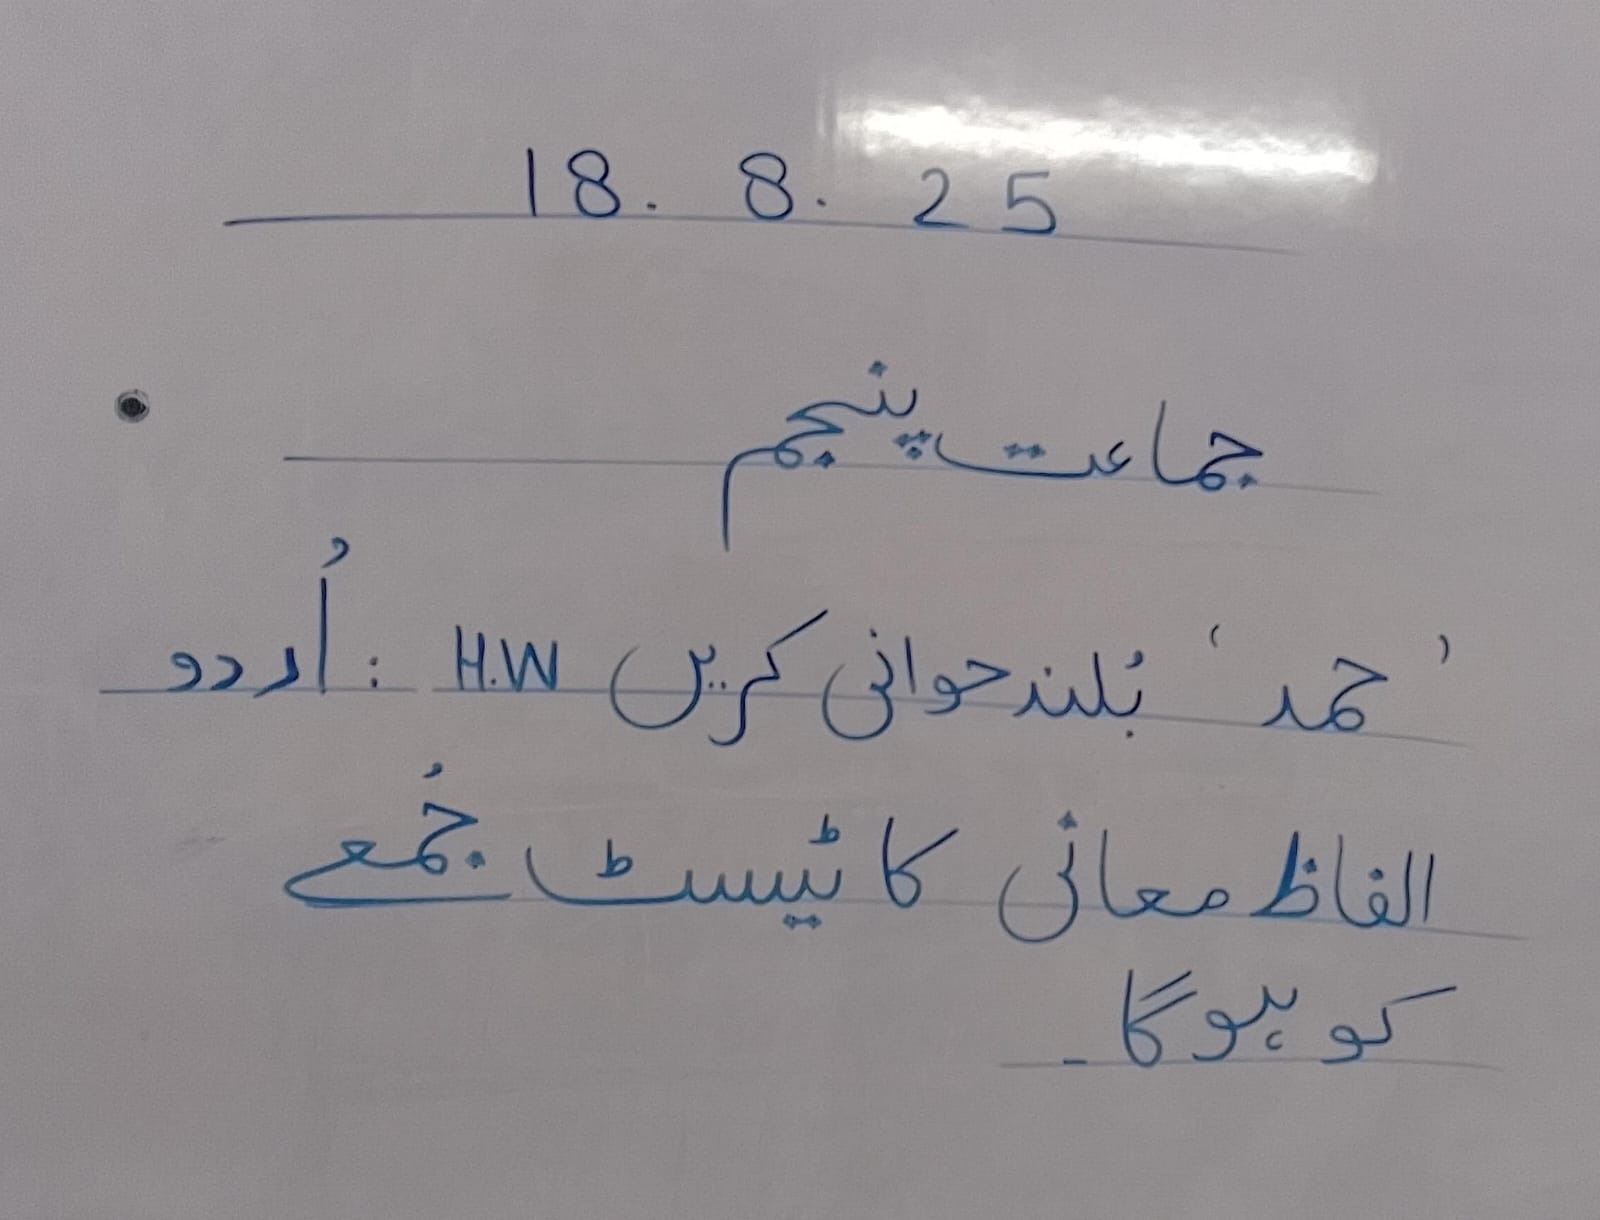 18. 8. 25
جماعت پنجم
’حمد‘ بُلند حوانی کریں H.W : اُردو
الفاظ معانی کا ٹیسٹ جُمعے
کو ہوگا۔